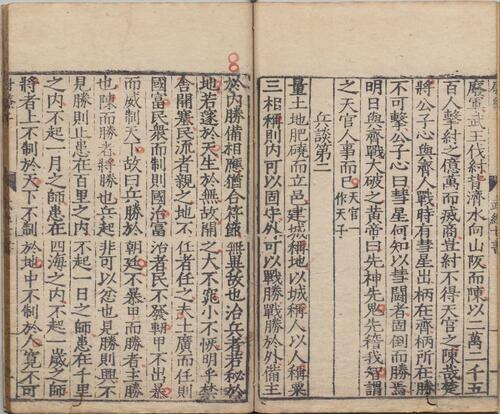 廢軍武王伐紂背濟水向山阪而陳以二萬二千五
百人擊紂之億萬而滅商豈紂不得天官之陳哉楚
將公子心與齊人戰時有彗星出柄在齊柄所在勝
不可擊公子心曰彗星何知以彗鬪者固倒而勝焉
明日與齊戰大破之黃帝曰先神先鬼先稽我智謂
之天官人事而已天官一作天子
兵談第二
量土地肥磽而立邑建城稱地以城稱人以人稱粟
三相稱則內可以固守外可以戰勝戰勝於外備主
於內勝備相應猶合符節無異故也治兵者若秘於
地若邃於天生於無故開之大不窕小不恢明乎禁
舍開塞民流者親之地不任者任之夫土廣而任則
國富民衆而制則國治富治者民不發軔甲不出暴
而威制天下故曰兵勝於朝廷不暴甲而勝者主勝
也陳而勝者將勝也兵起非可以忿也見勝則興不
見勝則止患在百里之內不起一日之師患在千里
之內不起一月之師患在四海之內不起一歲之師
將者上不制於天下不制於地中不制於人寬不可